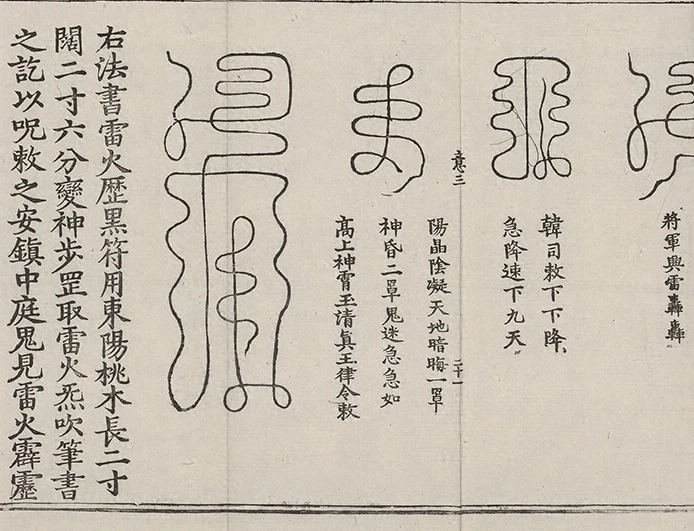 將軍興雷轟轟
韓司敕下下降
急降速下九天
意三
二十一
陽晶陰凝天地暗晦一罩
神昏二罩鬼迷急急如
高上神霄玉清真王律令敕
右法書雷火歷黑符用東陽桃木長二寸
闊二寸六分變神步罡取雷火炁吹筆書
之訖以呪敕之安鎮中庭鬼見雷火霹靂